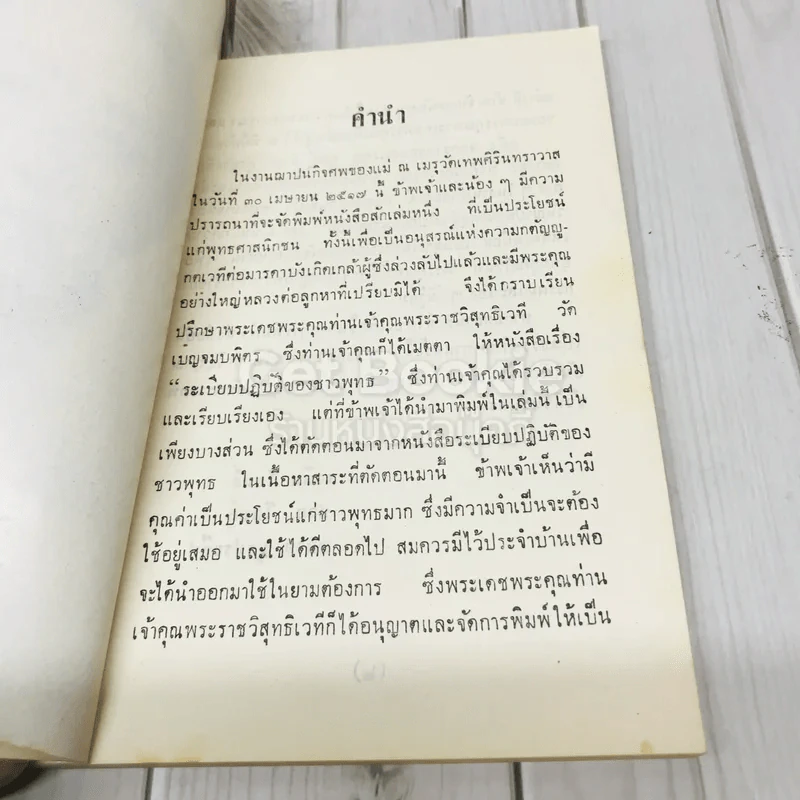 คำนำ
ในงานฌาปนกิจศพของแม่ ณ เมรุวัดเทพศิรินทราวาส
ในวันที่ ๓๐ เมษายน ๒๕๑๗ นี้ ข้าพเจ้าและน้อง ๆ มีความ
ปรารถนาที่จะจัดพิมพ์หนังสือสักเล่มหนึ่ง ที่เป็นประโยชน์
แก่พุทธศาสนิกชน ทั้งนี้เพื่อเป็นอนุสรณ์แห่งความกตัญญู-
กตเวทีต่อมารดาบังเกิดเกล้าผู้ซึ่งล่วงลับไปแล้วและมีพระคุณ
อย่างใหญ่หลวงต่อลูกหาที่เปรียบมิได้ จึงได้กราบเรียน
ปรึกษาพระเดชพระคุณท่านเจ้าคุณพระราชวิสุทธิเวที วัด
เบญจมบพิตร ซึ่งท่านเจ้าคุณก็ได้เมตตา ให้หนังสือเรื่อง
“ระเบียบปฏิบัติของชาวพุทธ” ซึ่งท่านเจ้าคุณได้รวบรวม
และเรียบเรียงเอง แต่ที่ข้าพเจ้าได้นำมาพิมพ์ในเล่มนี้ เป็น
เพียงบางส่วน ซึ่งได้ตัดตอนมาจากหนังสือระเบียบปฏิบัติของ
ชาวพุทธ ในเนื้อหาสาระที่ตัดตอนมานี้ ข้าพเจ้าเห็นว่ามี
คุณค่าเป็นประโยชน์แก่ชาวพุทธมาก ซึ่งมีความจำเป็นจะต้อง
ใช้อยู่เสมอ และใช้ได้ดีตลอดไป สมควรมีไว้ประจำบ้านเพื่อ
จะได้นำออกมาใช้ในยามต้องการ ซึ่งพระเดชพระคุณท่าน
เจ้าคุณพระราชวิสุทธิเวทีก็ได้อนุญาตและจัดการพิมพ์ให้เป็น